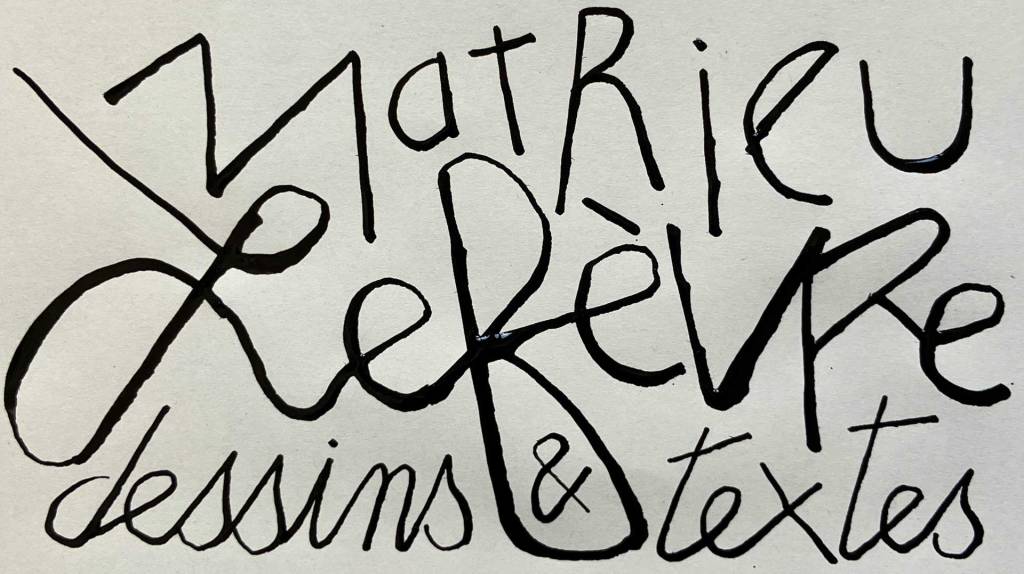 Mathieu
Lefèvre
dessins & textes